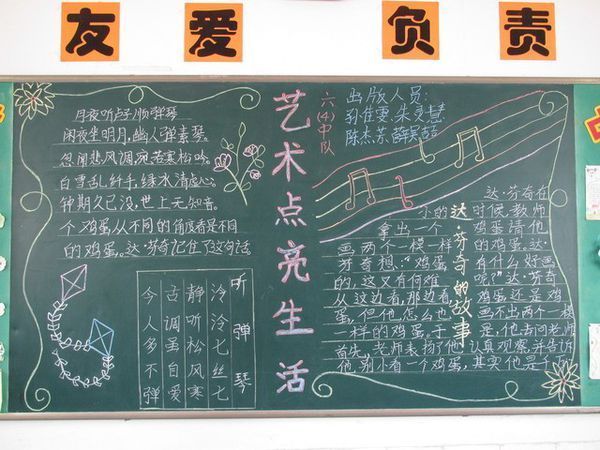 友爱负责
月夜听卢子顺弹琴
闲夜坐明月,幽人弹素琴。
忽闻悲风调,宛若寒松吟。
白雪乱纤手,绿水清虚心。
钟期久已没,世上无知音。
个鸡蛋从不同的角度看是不同
的鸡蛋。达·芬奇记住了这句话
听弹琴
泠泠七丝七
静听松风寒
古调虽自爱
今人多不弹
艺术点亮生活
六(4)中队
出版人员:
陈杰
达·芬奇的故事
达·芬奇在
小的时候,教师
拿出一个鸡蛋请他
画两个一模一样的鸡蛋。达·
芬奇想:“鸡蛋有什么好画
的,这又有何难呢?”达·芬奇
从这边看,那边看,鸡蛋还是鸡
蛋,但他怎么也画不出两个一模
一样的鸡蛋。于是,他去问老师
首先,老师表扬了他认真观察,并告诉
他,别小看一个鸡蛋,其实他是